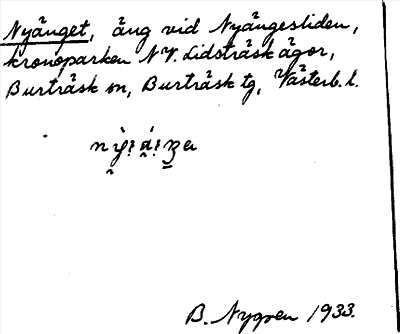 Nyänget, äng vid Nyängesliden,
kronoparken N V. Lidsträsk ägor,
Burträsk sn, Burträsk tg, Västerb. l.
B. Nygren 1933.